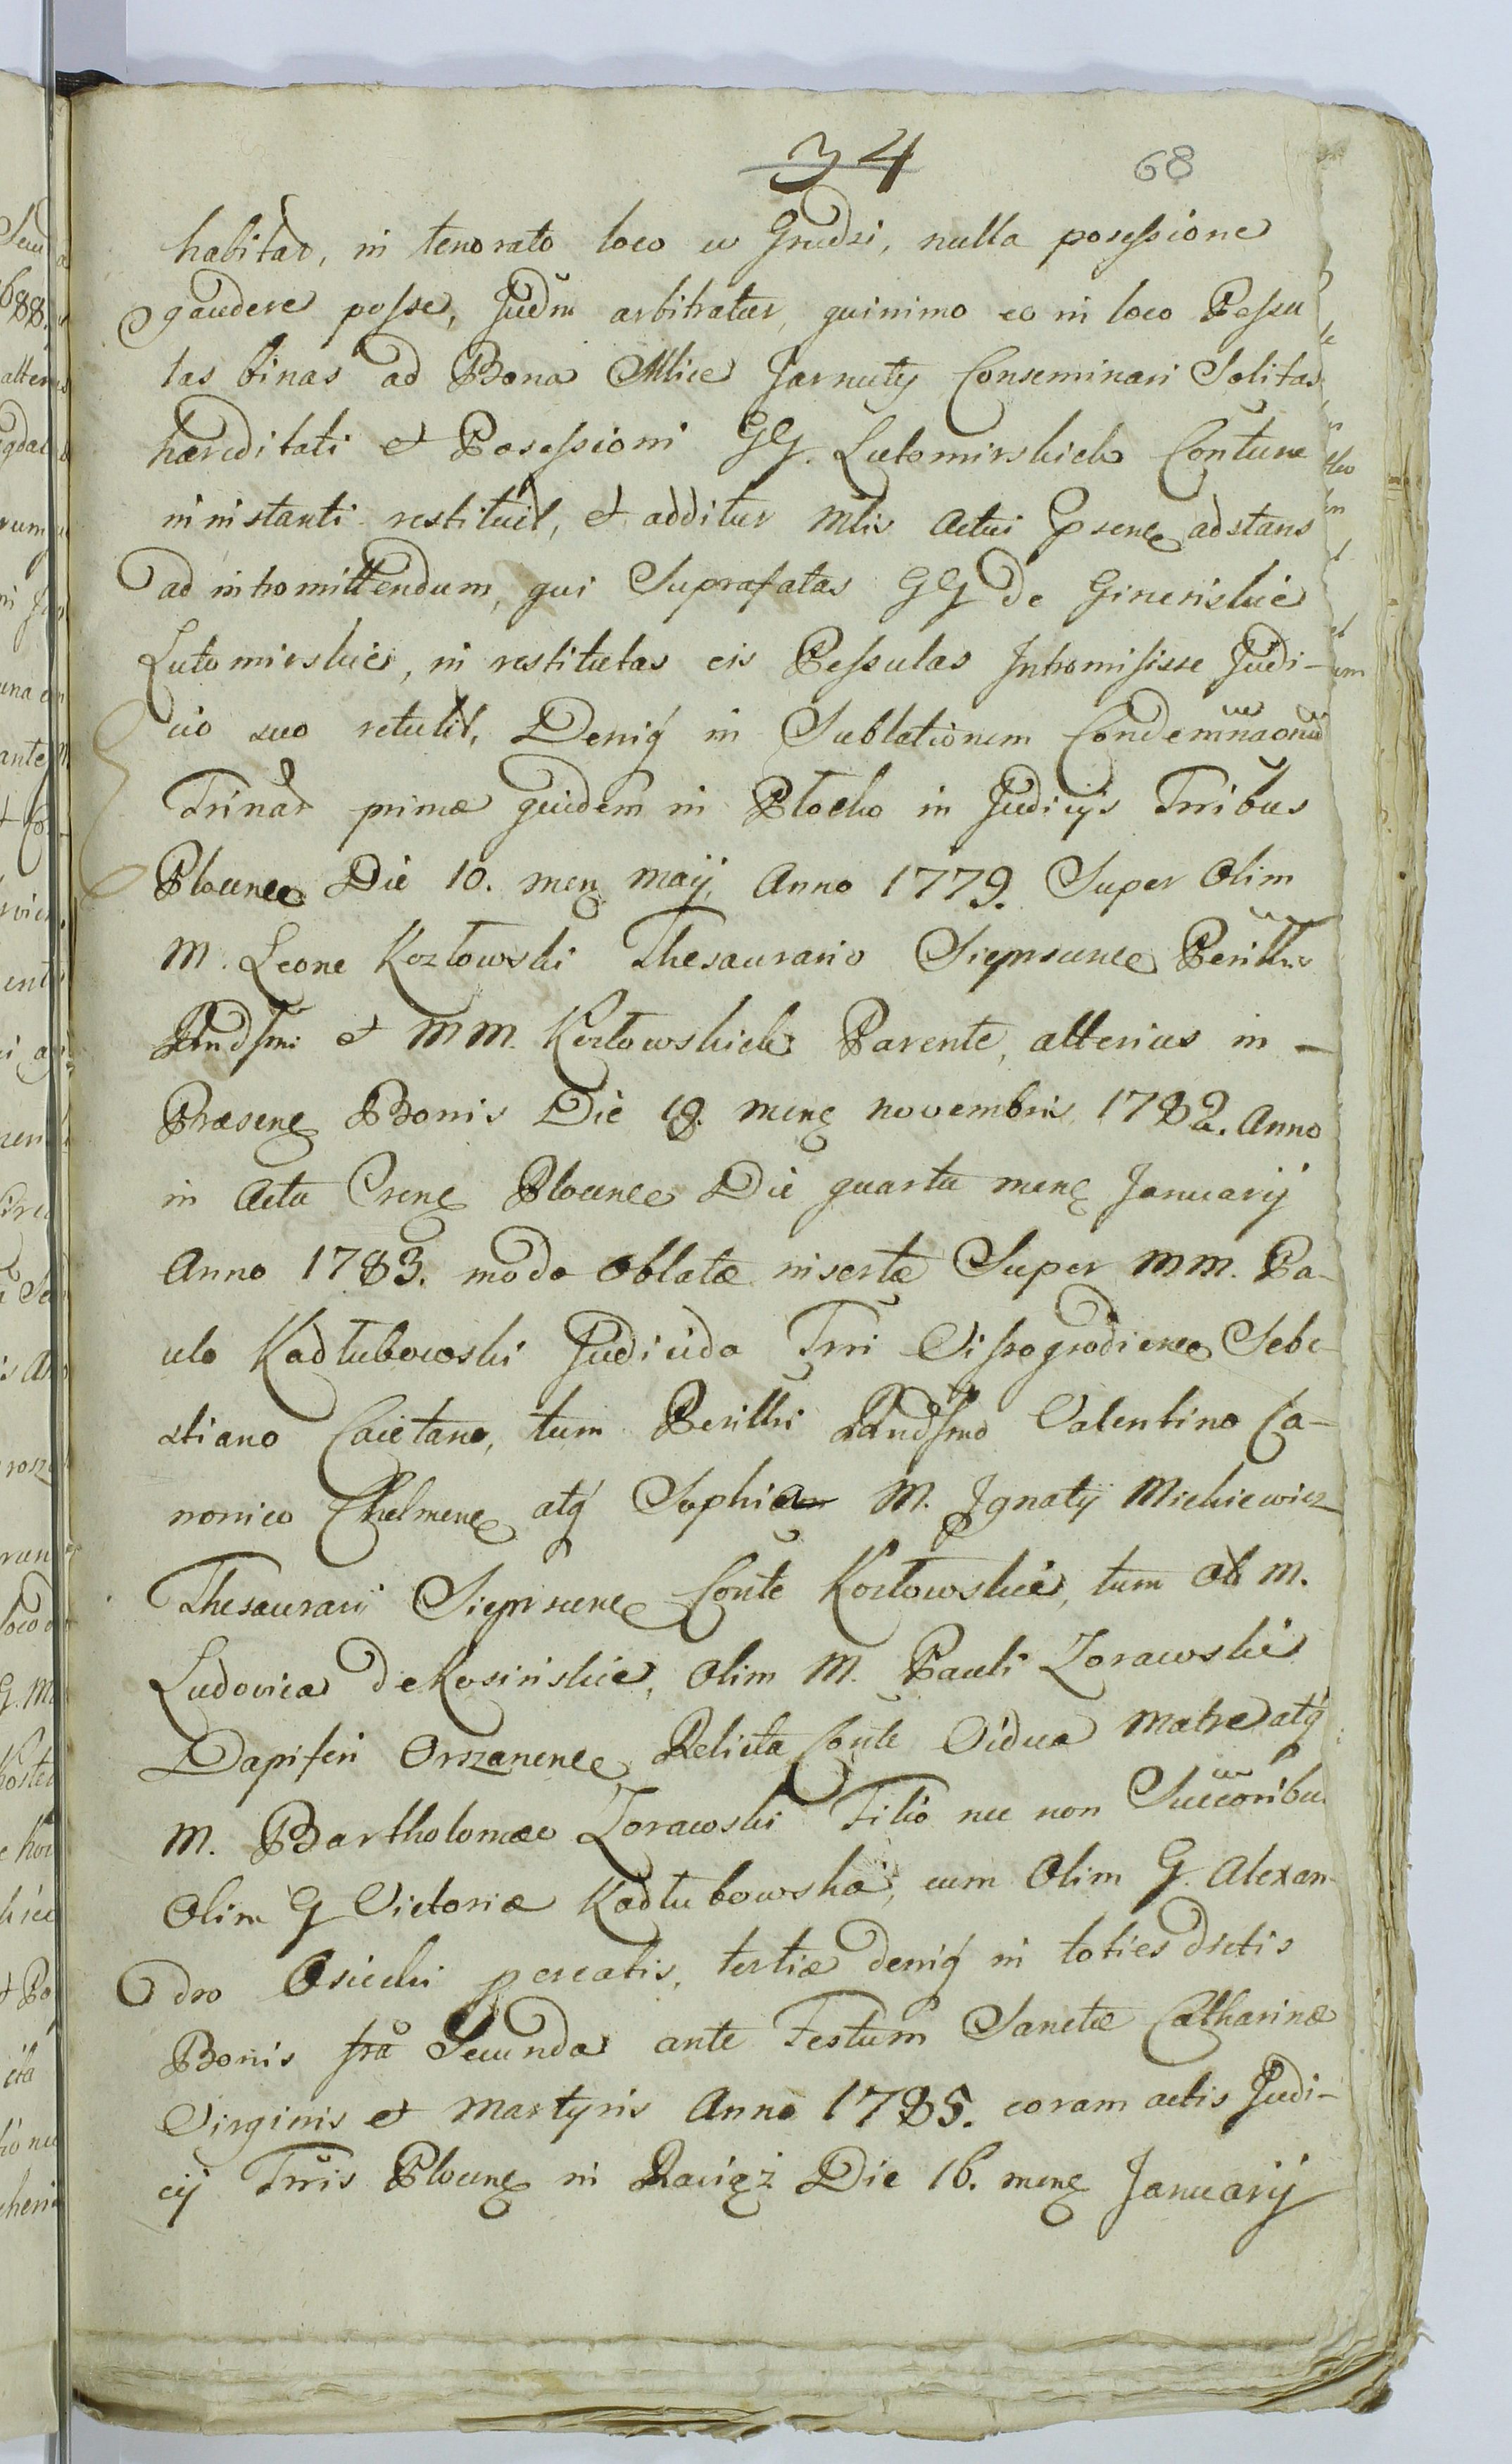 34 68
habitas, in tenorato loco w Grudzi, nulla posessione
gaudere posse, Judm arbitratur, quinimo eo in loco Pessu
las binas ad Bona Mlice Jarnuty Conseminari Solitas
hæreditati et Posessioni GG. Lutomirskich Contune
in instanti restituit, et additur Mlis Actui psenc adstans
ad intromittendum, qui Suprafatas GG de Gineriskie
Lutomirskies, in restitutas eis Pessulas Intromisisse Judi-
cio suo retulit, Deniq in Sublationem Condemnaonu
Trinar primæ quidem in Płocko in Judicys Trribus
Plocence Die 10. men maij, Anno 1779. Super Olim
M. Leone Kozłowski Thesaurario Sieprcence Perillis
Rndsmi et MM. Kozłowskich Parente, alterius in -
Præsenc Bonis Die 18. menc novembris 1782. Anno
in Acta Crenc Plocence Die quarta menc Januarij
Anno 1783. modo Oblatæ insertæ Super MM. Pa-
ulo Kadłubowski Judicida Trri Vissogrodience Seba-
stiano Caietano, tum Perilli Rndsmo Valentino Ca-
nonico Chelmenc atq Sophia M. Ignatij Mickiewicz
Thesaurarii Sieprcenc Conte Kozłowskie, tum Ab M.
Ludovica de Kosinskie, Olim M. Pauli Zorawskie
Dapiferi Orszanence Relicta Conte Vidua Matre atq
M. Bartholomæo Zorawski Filio nec non Succoribus
Olim G Victoriæ Kadłubowska, cum Olim G. Alexan-
dro Osiecki pcreatis, tertiæ deniq in toties dictis
Bonis fra Secunda ante Festum Sanctæ Catharinæ
Virginis et Martyris Anno 1785. coram actis Judi-
cij Trris Plocenc in Raciąż Die 16. menc Januarij